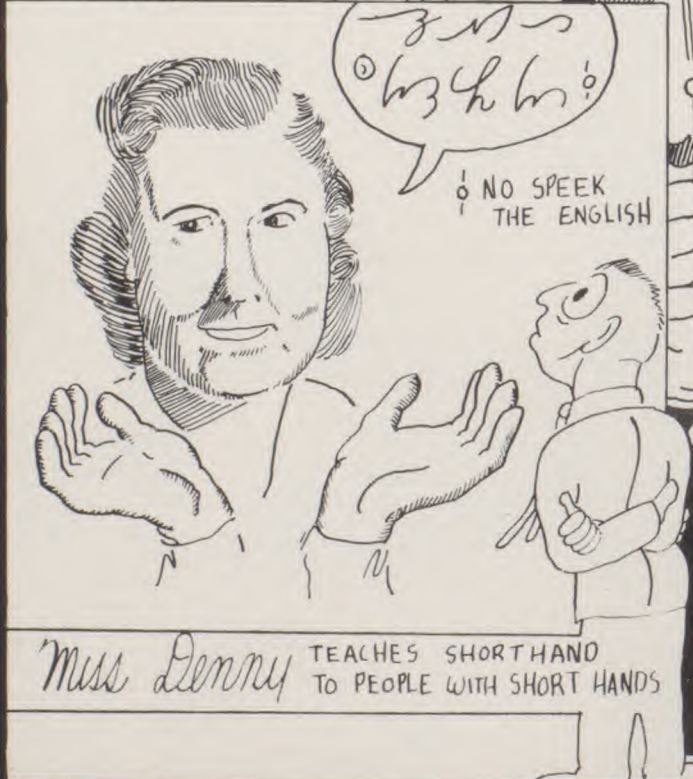 NO SPEEK
THE ENGLISH
Miss Denny TEACHES SHORTHAND
TO PEOPLE WITH SHORT HANDS